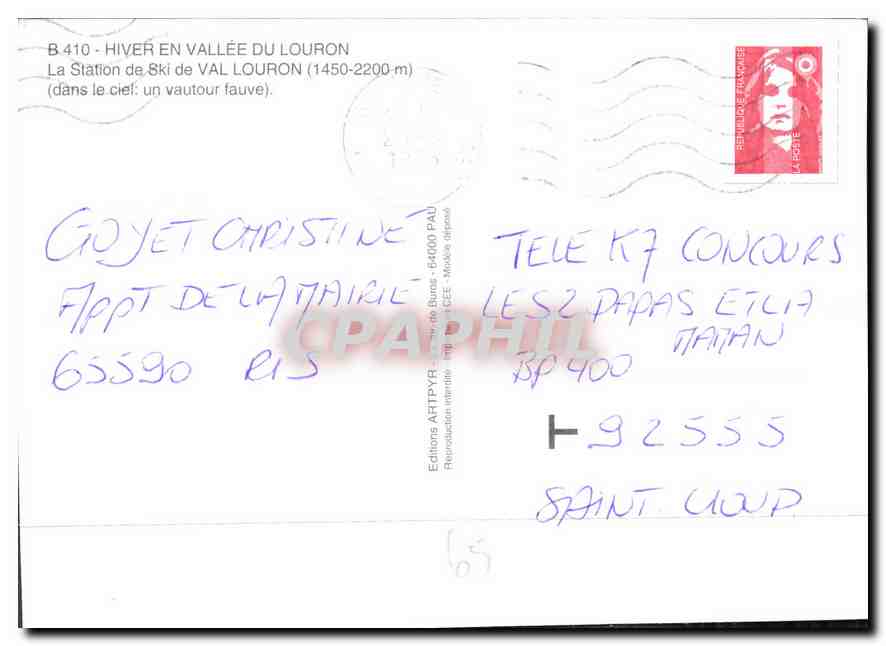 B 410 - HIVER EN VALLÉE DU LOURON
La Station de Ski de VAL LOURON (1450-2200 m)
(dans le ciel: un vautour fauve).
RÉPUBLIQUE FRANÇAISE
LA POSTE
GOYET CHRISTINE
APPT DE LA MAIRIE
65590 RIS
Editions ARTPYR - de Buros - 64000 PAU
Reproduction interdite - CEE - Modèle déposé
CPAPHIL
TELE K7 CONCOURS
LES 2 PAPAS ET LA
MAMAN
BP 400
T 92555
SAINT CLOUD
65